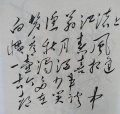 白发渔翁江渚上
惯看秋月春風
一壶浊酒喜相逢
古今多少事
都付笑谈中